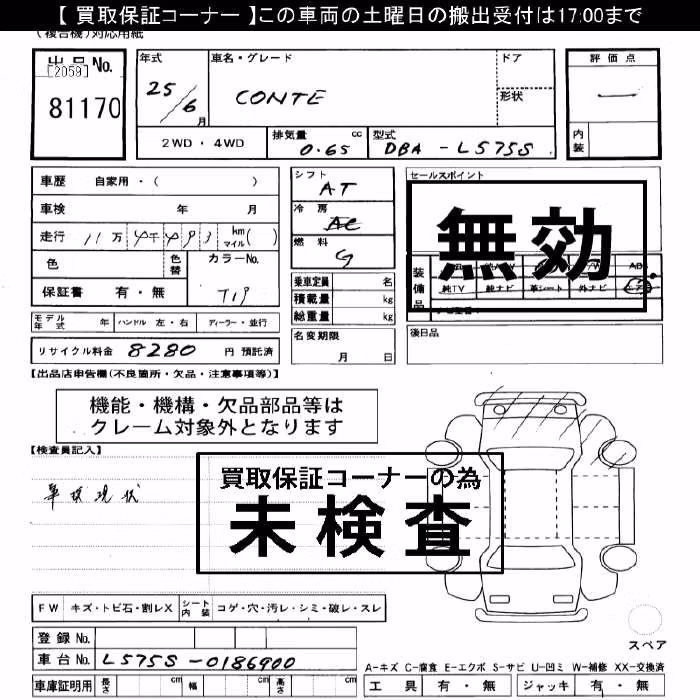 【 買取保証コーナー 】この車両の土曜日の搬出受付は17:00まで
(複合機)対応用紙
出品No.
[2059]
81170
年式
25/6月
車名・グレード
CONTE
ドア
形状
評価点
内装
2WD・4WD
排気量 0.65 cc
型式 DBA-L575S
車歴 自家用・( )
車検 年 月
走行 11万 km マイル( )
色
色替
カラーNo.
T19
保証書 有・無
シフト
AT
冷房
AC
燃料
G
乗車定員 名
積載量 kg
総重量 kg
名変期限
月 日
セールスポイント
無効
装備品
純TV 純ナビ 革シート 外ナビ エアB
後日品
モデル年式 年 ハンドル 左・右 ディーラー・並行
リサイクル料金 8280 円 預託済
【出品店申告欄(不良箇所・欠品・注意事項等)】
機能・機構・欠品部品等は
クレーム対象外となります
【検査員記入】
現状
買取保証コーナーの為
未検査
FW キズ・トビ石・割レX シート内装 コゲ・穴・汚レ・シミ・破レ・スレ
登録No.
車台No. L575S-0186900
車庫証明用 長さ cm 幅 cm 高さ cm
スペア
A-キズ C-腐食 E-エクボ S-サビ U-凹ミ W-補修 XX-交換済
工具 有・無 ジャッキ 有・無